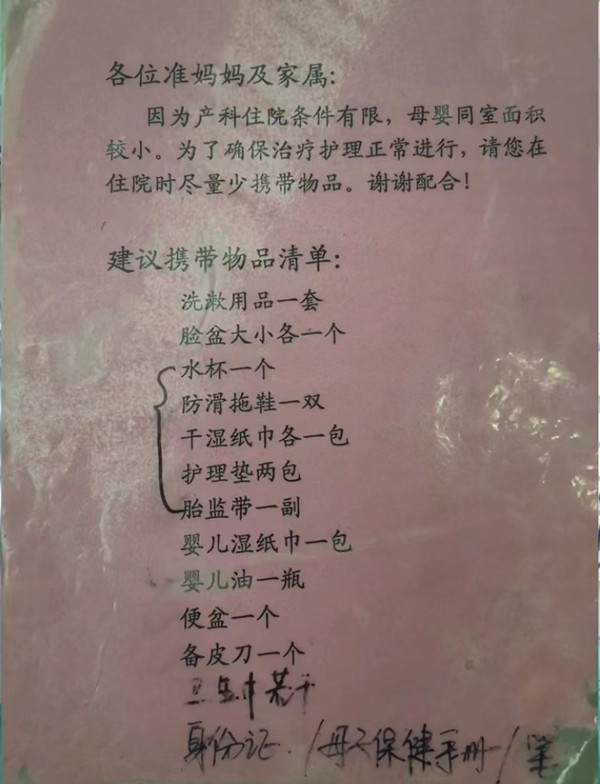 各位准妈妈及家属:
因为产科住院条件有限，母婴同室面积
较小。为了确保治疗护理正常进行，请您在
住院时尽量少携带物品。谢谢配合！
建议携带物品清单:
洗漱用品一套
脸盆大小各一个
水杯一个
防滑拖鞋一双
干湿纸巾各一包
护理垫两包
胎监带一副
婴儿湿纸巾一包
婴儿油一瓶
便盆一个
备皮刀一个
卫生巾若干
身份证. /母子保健手册/